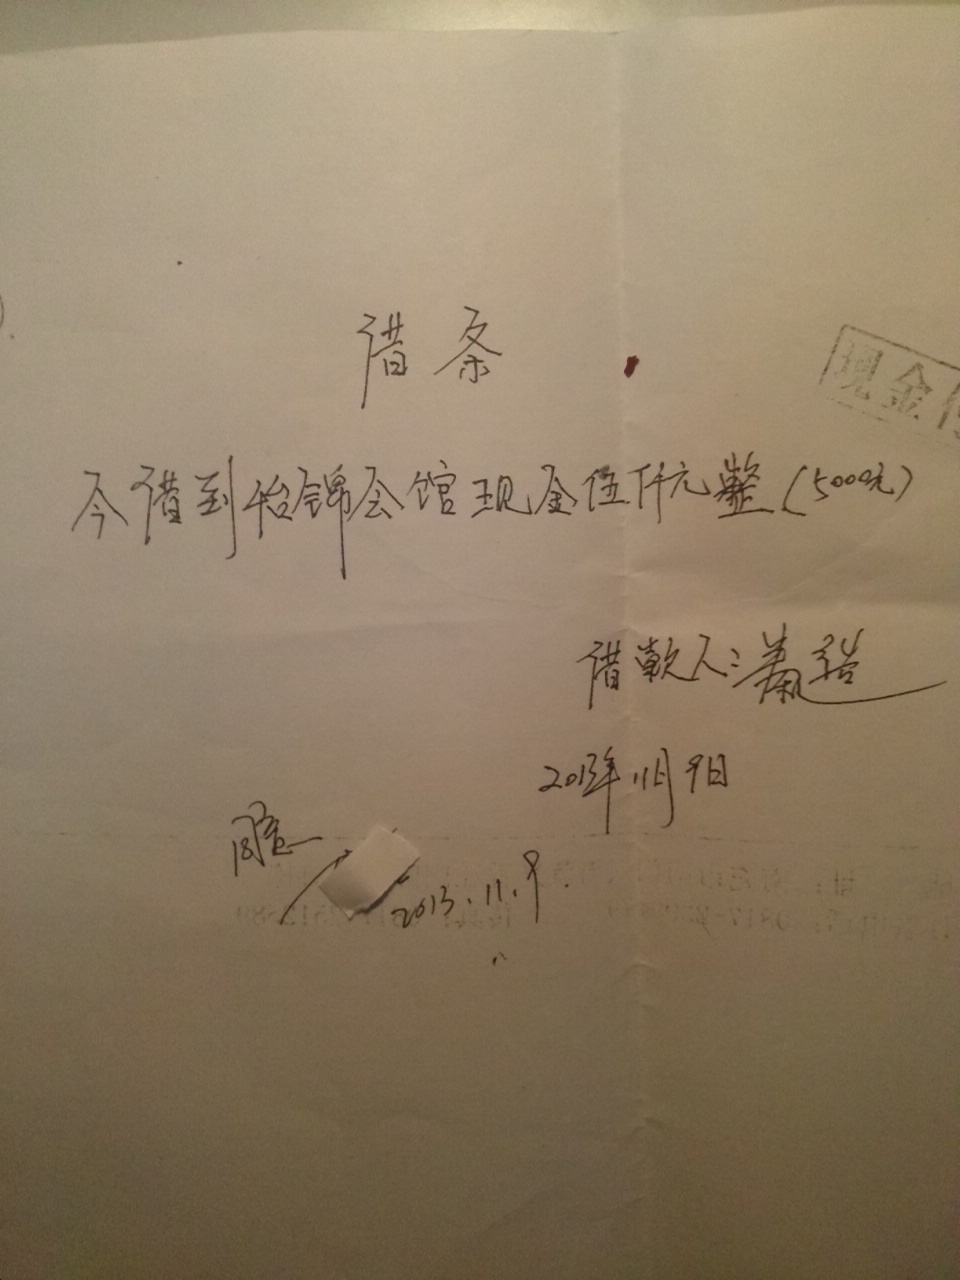 借条
现金
今借到怡锦会馆现金伍仟元整(5000元)
借款人:萧
2013年11月9日
同意
2013.11.9.